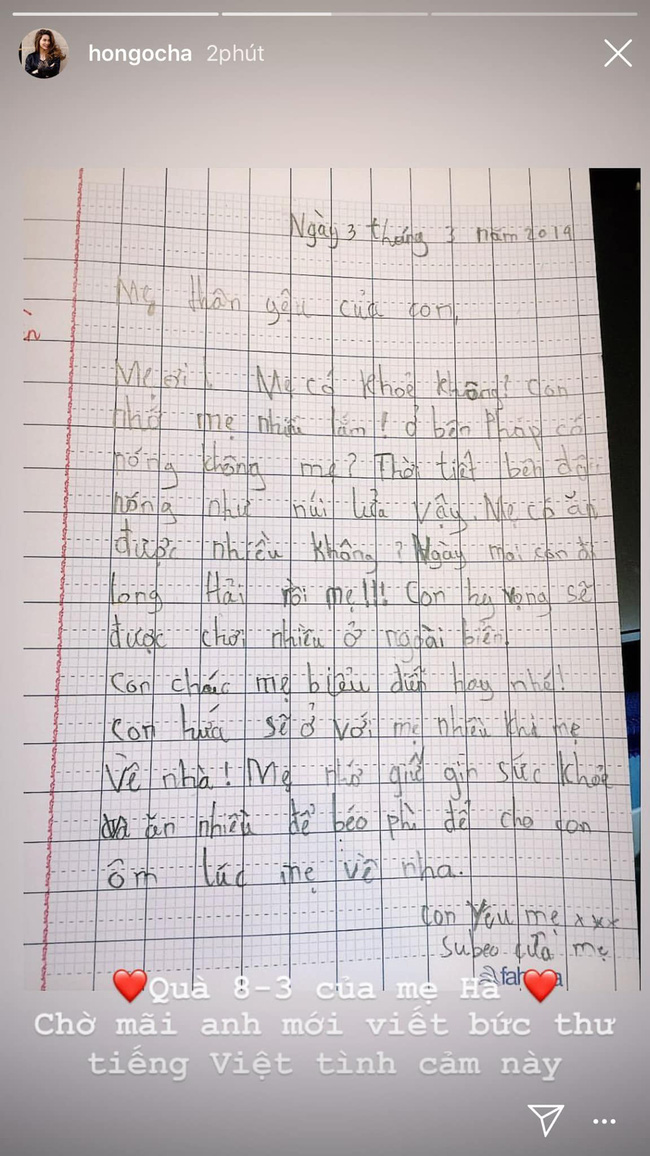 hongocha 2phút
Ngày 3 tháng 3 năm 2019
Mẹ thân yêu của con,
Mẹ ơi! Mẹ có khoẻ không? Con
nhớ mẹ nhiều lắm! ở bên Pháp có
nóng không mẹ? Thời tiết bên đây
nóng như núi lửa vậy. Mẹ có ăn
được nhiều không? Ngày mai con đi
Long Hải rồi mẹ!!! Con hy vọng sẽ
được chơi nhiều ở ngoài biển.
Con chúc mẹ biểu diễn hay nhé!
Con hứa sẽ ở với mẹ nhiều khi mẹ
Về nhà! Mẹ nhớ giữ gìn sức khoẻ
và ăn nhiều để béo phì để cho con
ôm lúc mẹ về nha.
Con Yêu mẹ xxx
Subeo của mẹ
❤️Quà 8-3 của mẹ Hà ❤️
Chờ mãi anh mới viết bức thư
tiếng Việt tình cảm này